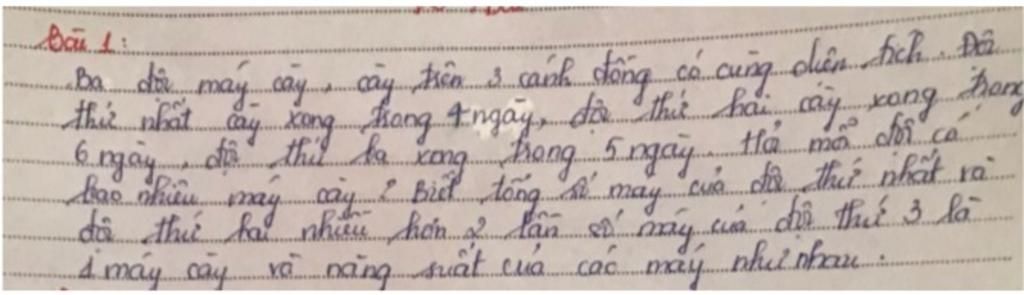 Bài 1:
Ba đội máy cày, cày trên 3 cánh đồng có cùng diện tích. Đội
thứ nhất cày xong trong 4 ngày, đội thứ hai cày xong trong
6 ngày, đội thứ ba xong trong 5 ngày. Hỏi mỗi đội có
bao nhiêu máy cày? Biết tổng số máy của đội thứ nhất và
đội thứ hai nhiều hơn 2 lần số máy của đội thứ 3 là
1 máy cày và năng suất của các máy như nhau.